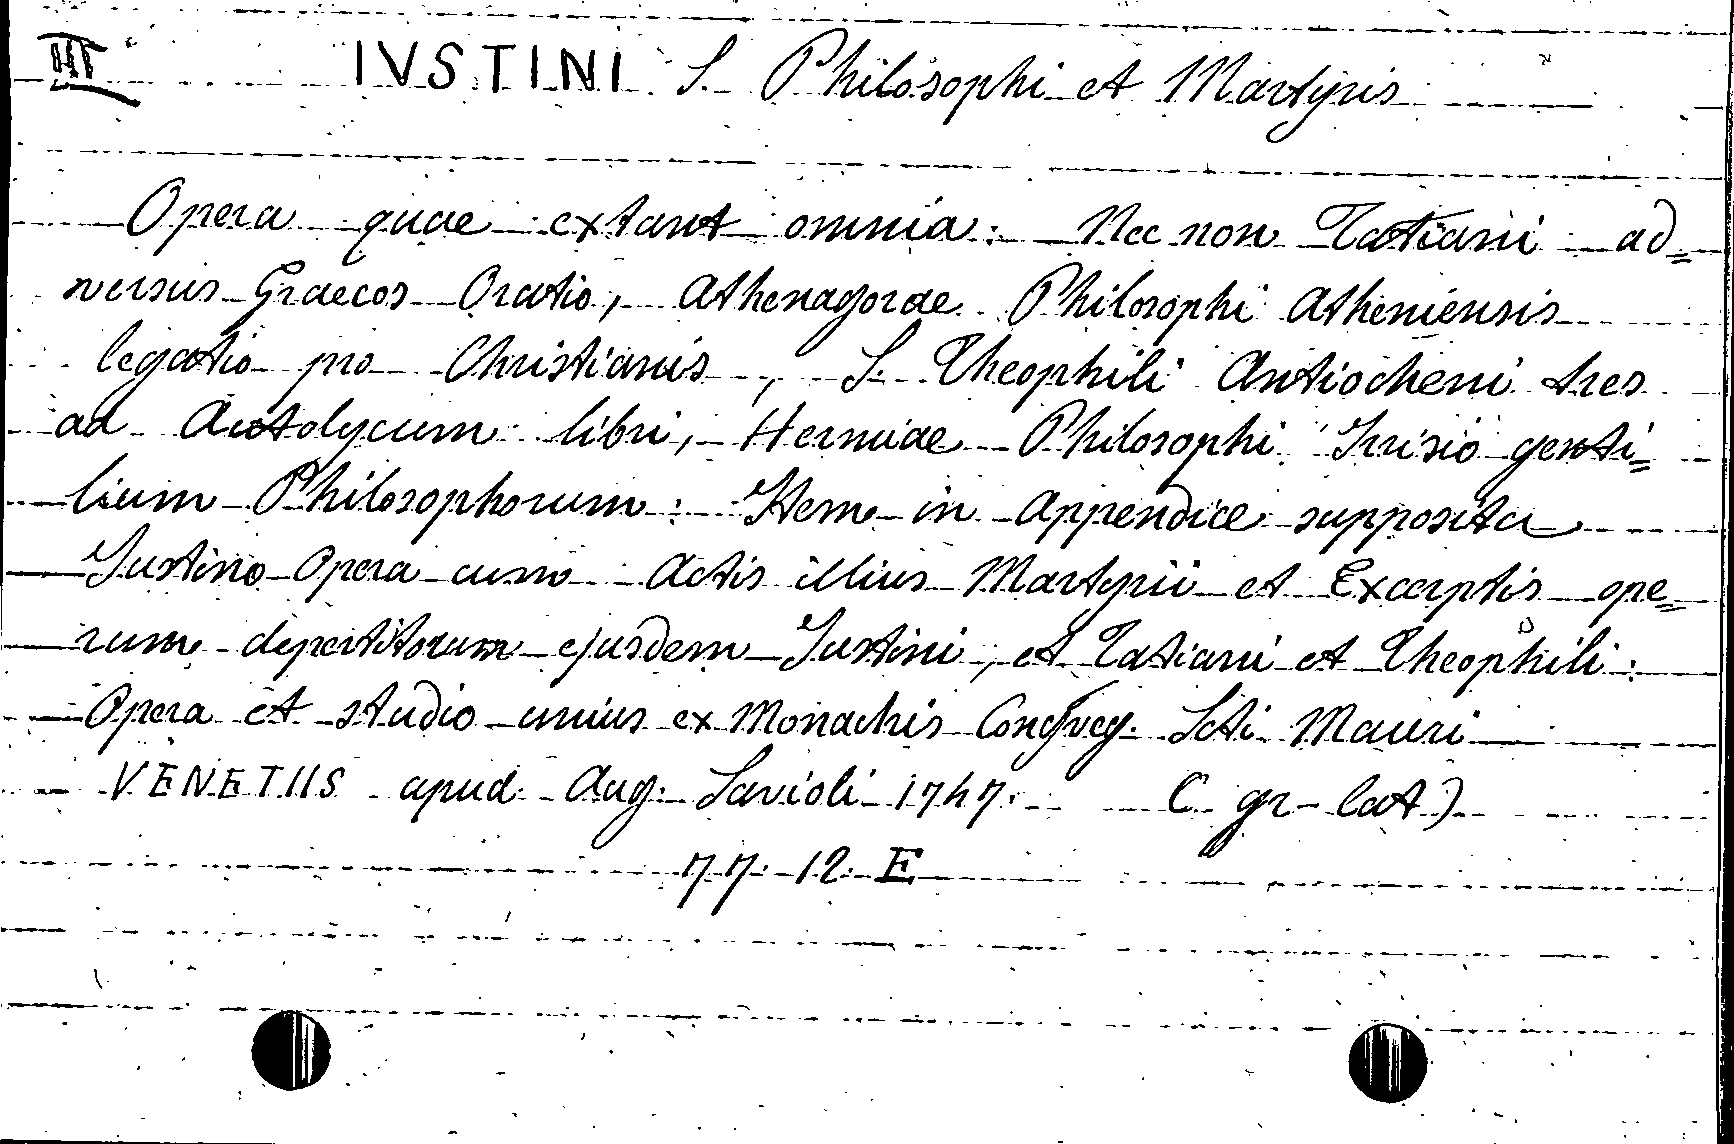 III IVSTINI S. Philosophi et Martyris
Opera quae extant omnia: Nec non Tatiani ad=
versus Graecos Oratio, Athenagorae Philosophi Atheniensis
legatio pro Christianis, S. Theophili Antiocheni tres
ad Autolycum libri, Hermiae Philosophi Irrisio genti=
lium Philosophorum: Item in Appendice supposita
Justino Opera cum Actis illius Martyrii et Excerptis ope=
rum deperditorum ejusdem Justini, et Tatiani et Theophili:
Opera et studio unius ex Monachis Congreg. Scti Mauri
VENETIIS apud Aug: Savioli 1747. ( gr-lat)
77. 12. E